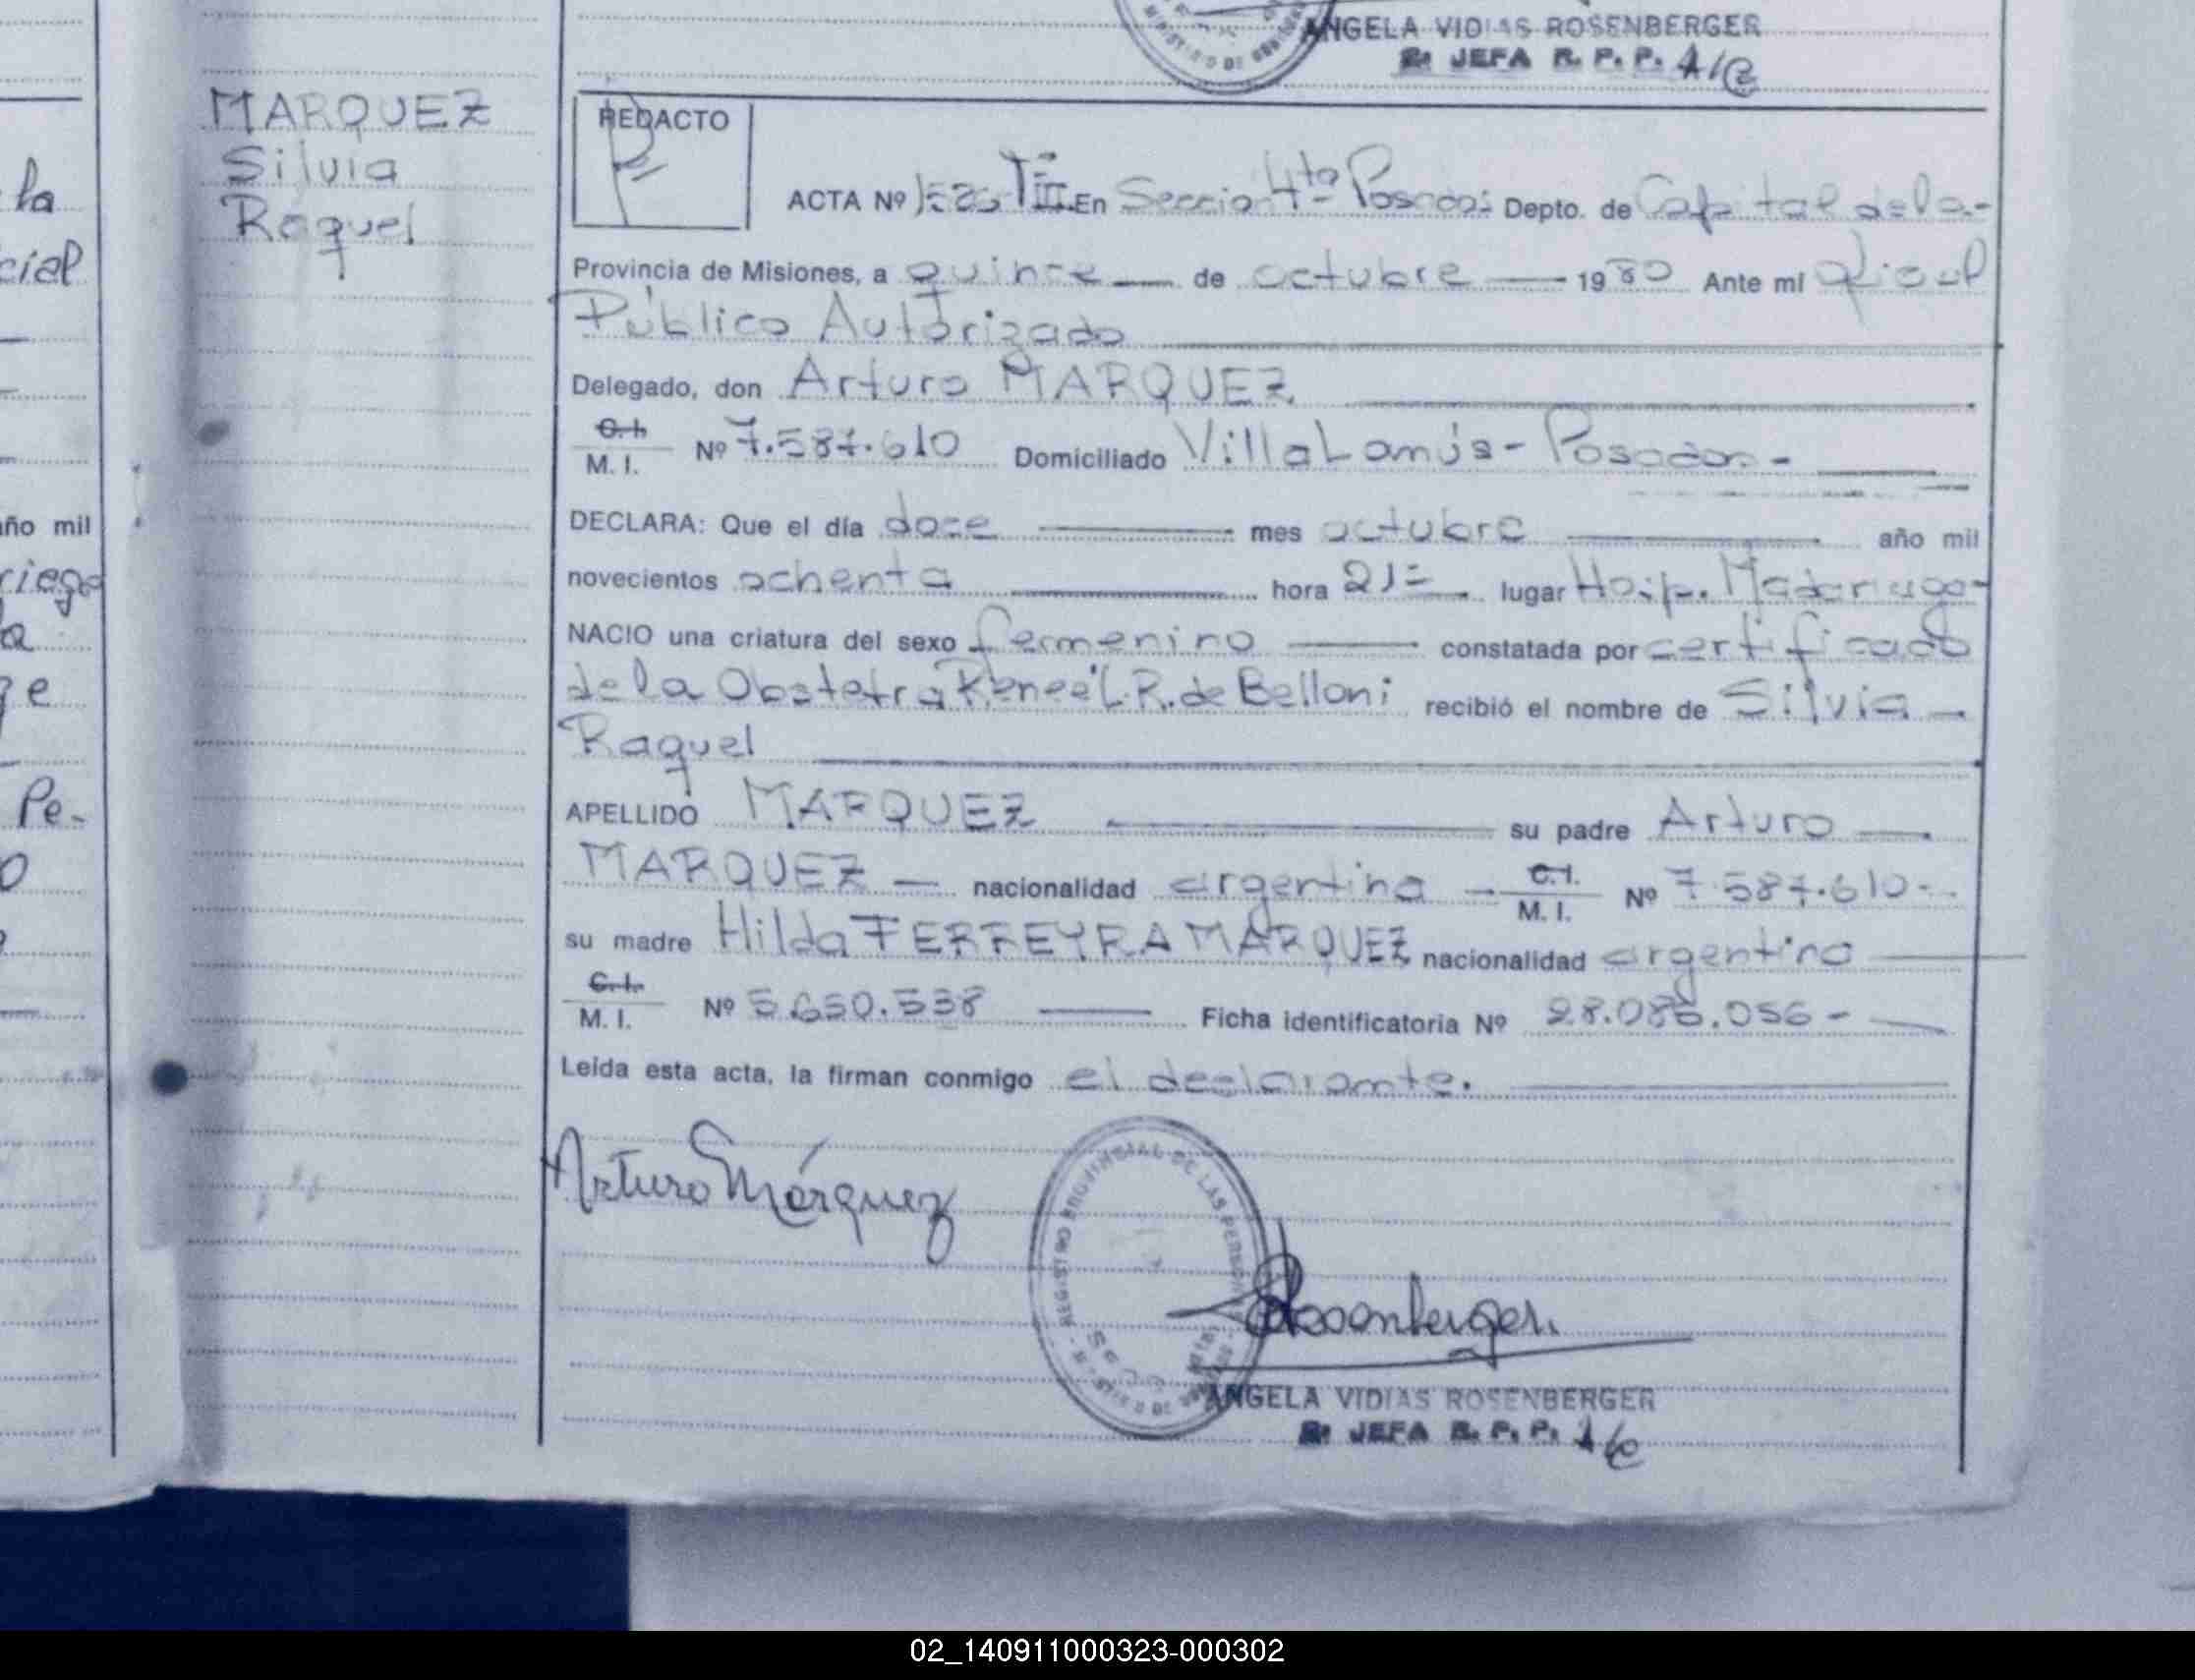 ANGELA VIDIAS ROSENBERGER
2ª JEFA R. P. P. A/C
MARQUEZ
Silvia
Raquel
REDACTO
ACTA Nº TºIII En Seccion 4ta Posadas Depto. de Capital de la-
Provincia de Misiones, a quince de octubre 1980 Ante mi Oficial
Público Autorizado
Delegado, don Arturo MARQUEZ
C. I. M. I. Nº 7.587.610 Domiciliado Villa Lanús - Posadas -
DECLARA: Que el día doce mes octubre año mil
novecientos ochenta hora 21= lugar Hosp. Madariaga-
NACIO una criatura del sexo femenino constatada por certificado
de la Obstetra Reneé L. R. de Belloni recibió el nombre de Silvia
Raquel
APELLIDO MARQUEZ su padre Arturo
MARQUEZ nacionalidad argentina C. I. M. I. Nº 7.587.610-
su madre Hilda FERREYRA MARQUEZ nacionalidad argentina
C. I. M. I. Nº 5.650.538 Ficha identificatoria Nº 28.085.056 -
Leida esta acta, la firman conmigo el declarante.
Arturo Márquez
REGISTRO PROVINCIAL DE LAS PERSONAS
Rosenberger
ANGELA VIDIAS ROSENBERGER
2ª JEFA R. P. P. A/C
la
cial
año mil
riega
a
e
Pe-
o
02_140911000323-000302